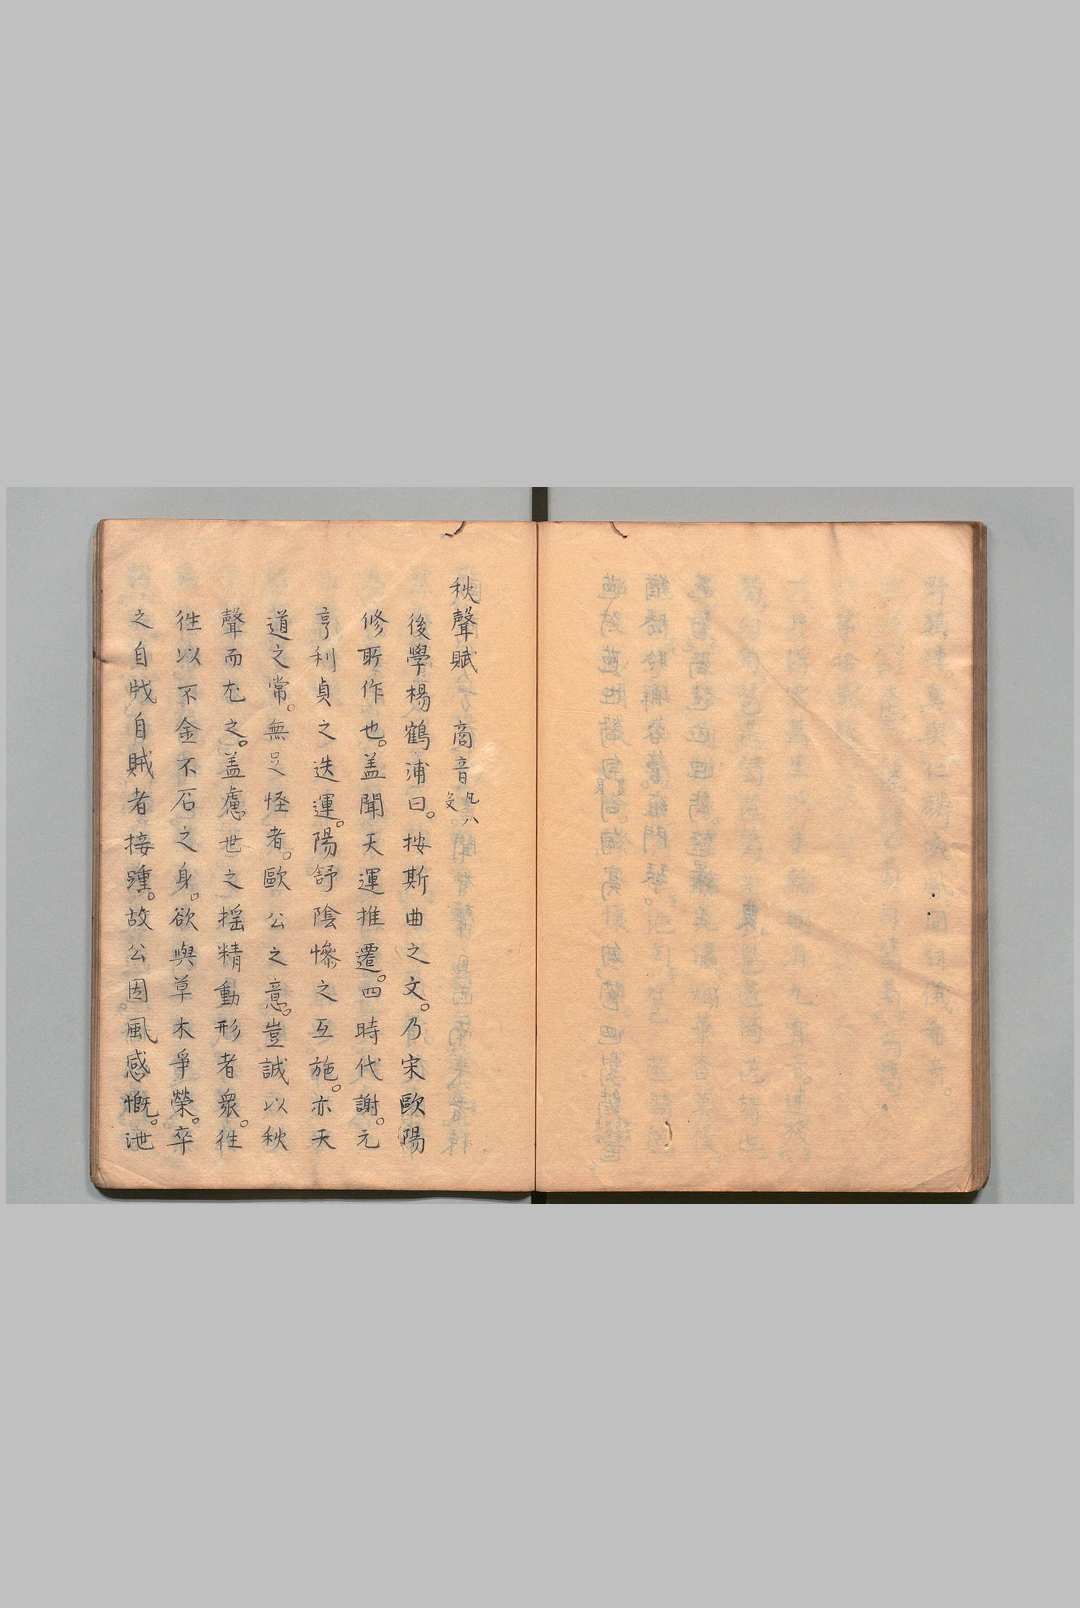 秋聲賦 商音 凡八
段
後學楊鶴浦曰。按斯曲之文。乃宋歐陽
修所作也。蓋聞天運推遷。四時代謝。元
亨利貞之迭運。陽舒陰慘之互施。亦天
道之常。無足怪者。歐公之意。豈誠以秋
聲而尤之。蓋慮世之搖精動形者衆。徃
徃以不金不石之身。欲與草木爭榮。卒
之自戕自賊者接踵。故公因風感慨。泄